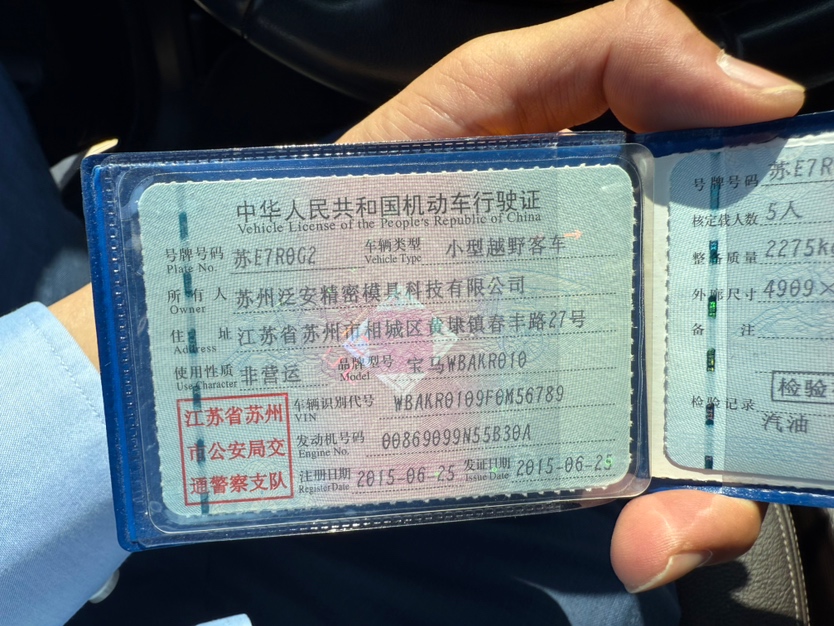 中华人民共和国机动车行驶证
Vehicle License of the People's Republic of China
号牌号码 苏E7R0G2 车辆类型 小型越野客车
Plate No. Vehicle Type
所有人 苏州泛安精密模具科技有限公司
Owner
住址 江苏省苏州市相城区黄埭镇春丰路27号
Address
使用性质 非营运 品牌型号 宝马WBAKR010
Use Character Model
车辆识别代号 WBAKR0109F0M56789
VIN
发动机号码 00869099N55B30A
Engine No.
注册日期 2015-06-25 发证日期 2015-06-25
Register Date Issue Date
江苏省苏州
市公安局交
通警察支队
号牌号码 苏E7R
核定载人数 5人
整备质量 2275k
外廓尺寸 4909×
备注
检验记录 检验
汽油